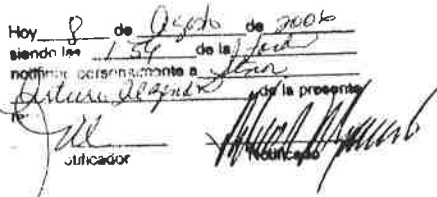 Hoy 8 de Agosto de 2006
siendo las 1:54 de la Tarde
notifiqué personalmente a Señor
Arturo de la presente
Notificador Notificado